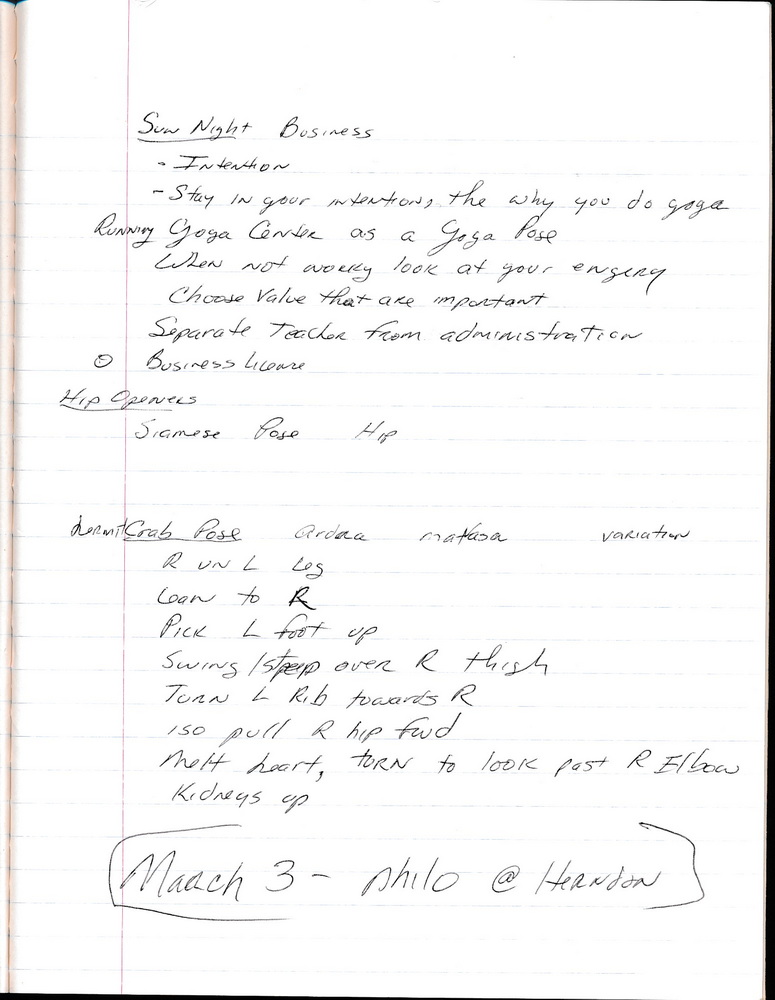 Sun Night Business
- Intention
- Stay in your intentions, the why you do yoga
Running Yoga Center as a Yoga Pose
When not worky look at your engery
Choose Value that are important
Separate Teacher from administration
Business license
Hip Openers
Siamese Pose Hip
Hermit Crab Pose ardaa matasa variation
R un L Leg
Lean to R
Pick L foot up
Swing / step over R thigh
Turn L Rib towards R
iso pull R hip fwd
Melt heart, turn to look past R Elbow
Kidneys up
March 3 - philo @ Herndon